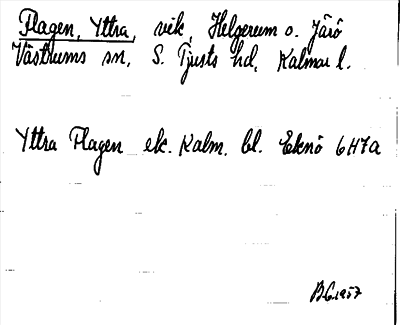 Flagen, Yttra, vik, Helgerum o. Järö
Västrums sn, S. Tjusts hd, Kalmar l.
Yttra Flagen ek. Kalm. bl. Eknö 6H7a
1957